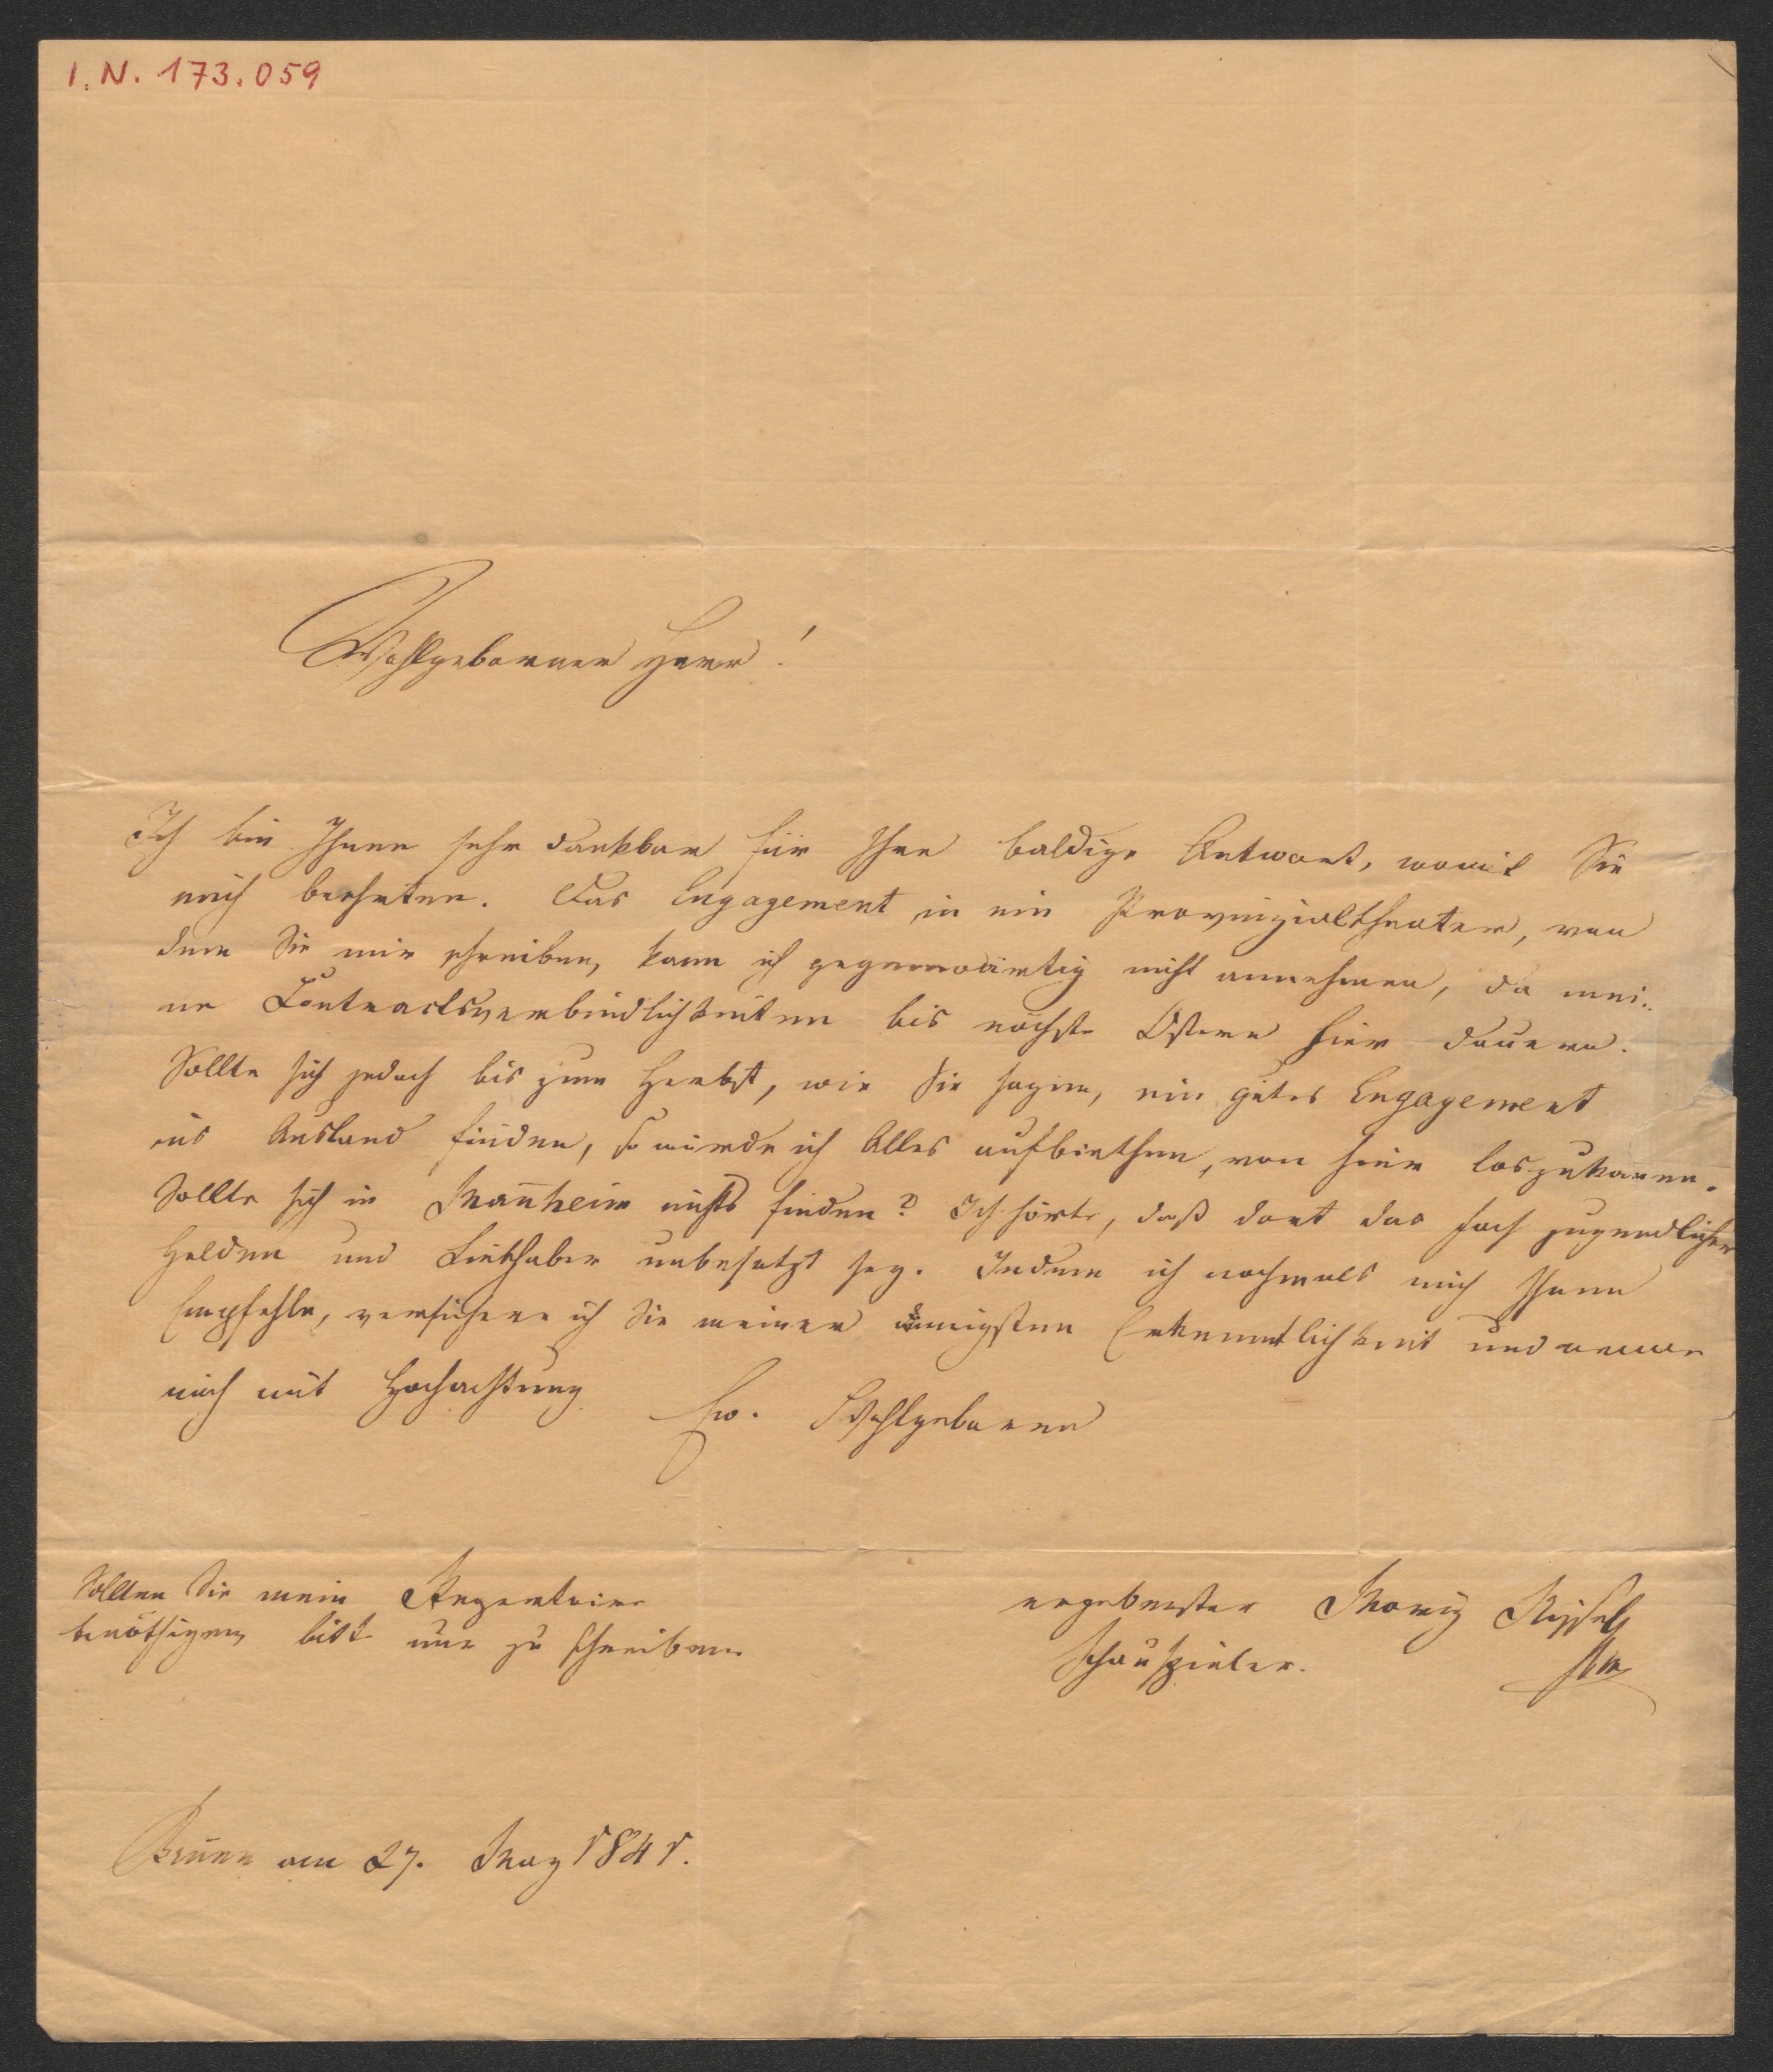 I. N. 173.059
Wohlgeborner Herr!
Ich bin Ihnen sehr dankbar für Ihre baldige Antwort, womit Sie
mich beehrten. Das Engagement in ein Provinzialtheater, von
dem Sie mir schreiben, kann ich gegenwärtig nicht annehmen, da mei-
ne Contractsverbindlichkeiten bis nächste Ostern hier dauern.
Sollte sich jedoch bis zum Herbst, wie Sie sagen, ein gutes Engagement
ins Ausland finden, so würde ich Alles aufbiethen, von hier loszukommen.
Sollte sich in Mañheim nichts finden? Ich hörte, daß dort das Fach jugendlicher
Helden und Liebhaber unbesetzt sey. Indem ich nochmals mich Ihnen
Empfehle, versichere ich Sie meiner innigsten Erkenntlichkeit und nenne
mich mit Hochachtung
Ew. Wohlgeboren
Sollten Sie mein Repertoire
benöthigen, bitt mir zu schreiben.
ergebenster Moriz
Schauspieler.
Brünn am 27. May 1841.